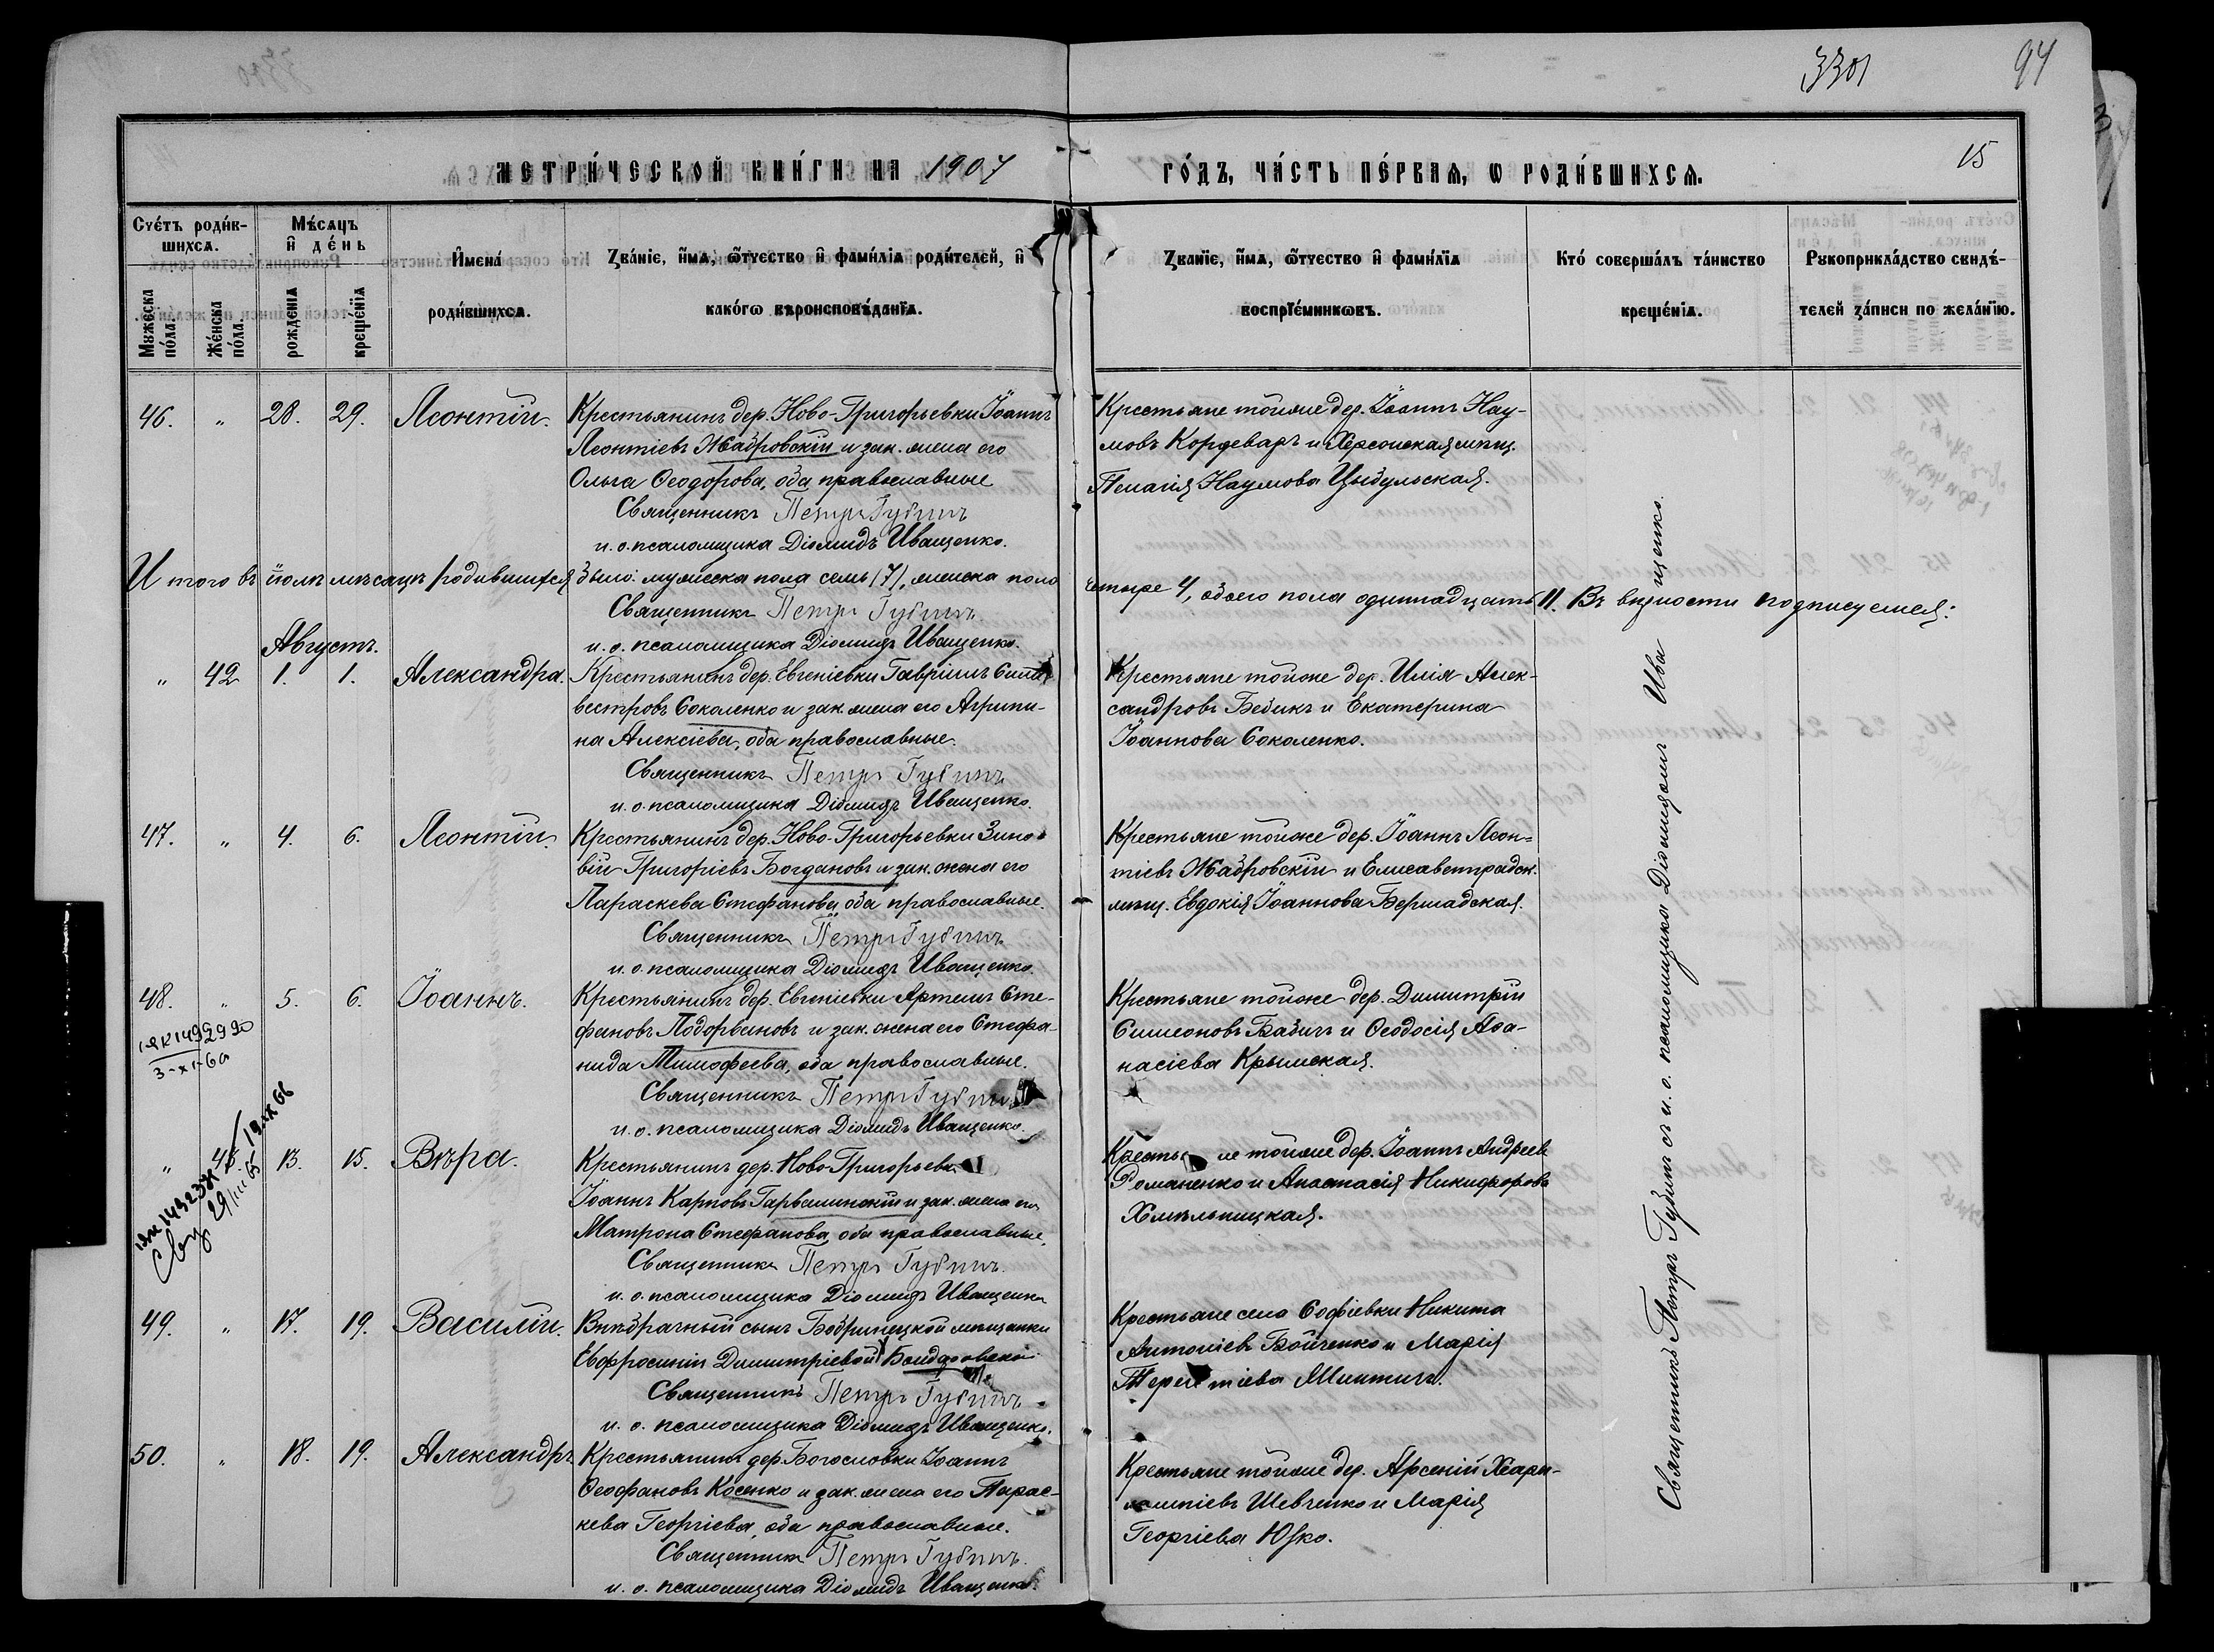 3301
94
МЕТРИ́ЧЕСКОЙ КНИ́ГИ НА 1907
ГО́ДЪ, ЧА́СТЬ ПЕ́РВАѦ, Ѡ РОДИ́ВШИХСѦ.
15
Сче́тъ роди́в-
шихсѧ.
Мꙋ́жеска по́ла.
Же́нска по́ла.
Мѣ́сѧцъ
и҆ де́нь
рожде́нїѧ
креще́нїѧ
И҆мена́
роди́вшихсѧ.
Зва́нїе, и҆́мѧ, ѻ҆́тчество и҆ фами́лїѧ роди́телей, и҆
како́гѡ вѣроисповѣ́данїѧ.
Зва́нїе, и҆́мѧ, ѻ҆́тчество и҆ фами́лїѧ
воспрїе́мникѡвъ.
Кто́ соверша́лъ та́инство
креще́нїѧ.
Рꙋкоприкла́дство свидѣ́-
телей за́писи по жела́нїю.
46. " 28. 29. Леонтій. Крестьянинъ дер. Ново-Григорьевки Іоаннъ
Леонтіевъ Жабровскій и зак. жена его
Ольга Ѳеодорова, оба православные
Священникъ Петръ Губинъ
и. о. псаломщика Діомидъ Иващенко.
Крестьяне тойже дер. Іоаннъ Нау-
мовъ Кордеваръ и Херсонская мѣщ.
Пелагія Наумова Цыбульская.
И того въ іюлѣ мѣсяцѣ родившихся было: мужеска пола семь (7), женска пола
четыре 4, обоего пола одиннадцать 11. Въ вѣрности подписуемся:
Священникъ Петръ Губинъ.
и. о. псаломщика Діомидъ Иващенко.
Августъ.
" 42 1. 1. Александра. Крестьянинъ дер. Евгеніевки Гавріилъ Силь-
вестровъ Соколенко и зак. жена его Агрипи-
на Алексіева, оба православные.
Священникъ Петръ Губинъ
и. о. псаломщика Діомидъ Иващенко.
Крестьяне тойже дер. Илія Алек-
сандровъ Бебикъ и Екатерина
Іоаннова Соколенко.
47. " 4. 6. Леонтій. Крестьянинъ дер. Ново-Григорьевки Зино-
вій Григоріевъ Богдановъ и зак. жена его
Параскева Стефанова, оба православные.
Священникъ Петръ Губинъ
и. о. псаломщика Діомидъ Иващенко.
Крестьяне тойже дер. Іоаннъ Леон-
тіевъ Жабровскій и Елисаветградск.
мѣщ. Евдокія Іоаннова Бершадская.
48. " 5. 6. Іоаннъ. Крестьянинъ дер. Евгеніевки Артемъ Сте-
фановъ Подорвановъ и зак. жена его Стефа-
нида Тимофеева, оба православные.
Священникъ Петръ Губинъ
и. о. псаломщика Діомидъ Иващенко.
Крестьяне тойже дер. Димитрій
Симеоновъ Бабичъ и Ѳеодосія Аѳа-
насіева Крымская.
" 13. 15. Вѣра. Крестьянинъ дер. Ново-Григорьевки
Іоаннъ Карповъ и зак. жена его
Матрона Стефанова, оба православные.
Священникъ Петръ Губинъ.
и. о. псаломщика Діомидъ Иващенко
Крестьяне тойже дер. Іоаннъ Андреевъ
Романенко и Анастасія Никифорова
Хмѣльницкая.
49. " 17. 19. Василій. Внѣбрачный сынъ Бобринецкой мѣщанки
Евфросиніи Димитріевой
Священникъ Петръ Губинъ
и. о. псаломщика Діомидъ Иващенко.
Крестьяне села Софіевки Никита
Антоніевъ Бойченко и Марія
Терентіева
50. " 18. 19. Александръ Крестьянинъ дер. Богословки Іоаннъ
Ѳеофановъ Косенко и зак. жена его Парас-
кева Георгіева, оба православные.
Священникъ Петръ Губинъ.
и. о. псаломщика Діомидъ Иващенко.
Крестьяне тойже дер. Арсеній Хара-
лампіевъ Шевченко и Марія
Георгіева Юзко.
Священникъ Петръ Губинъ съ и. о. псаломщика Діомидомъ Иващенко.